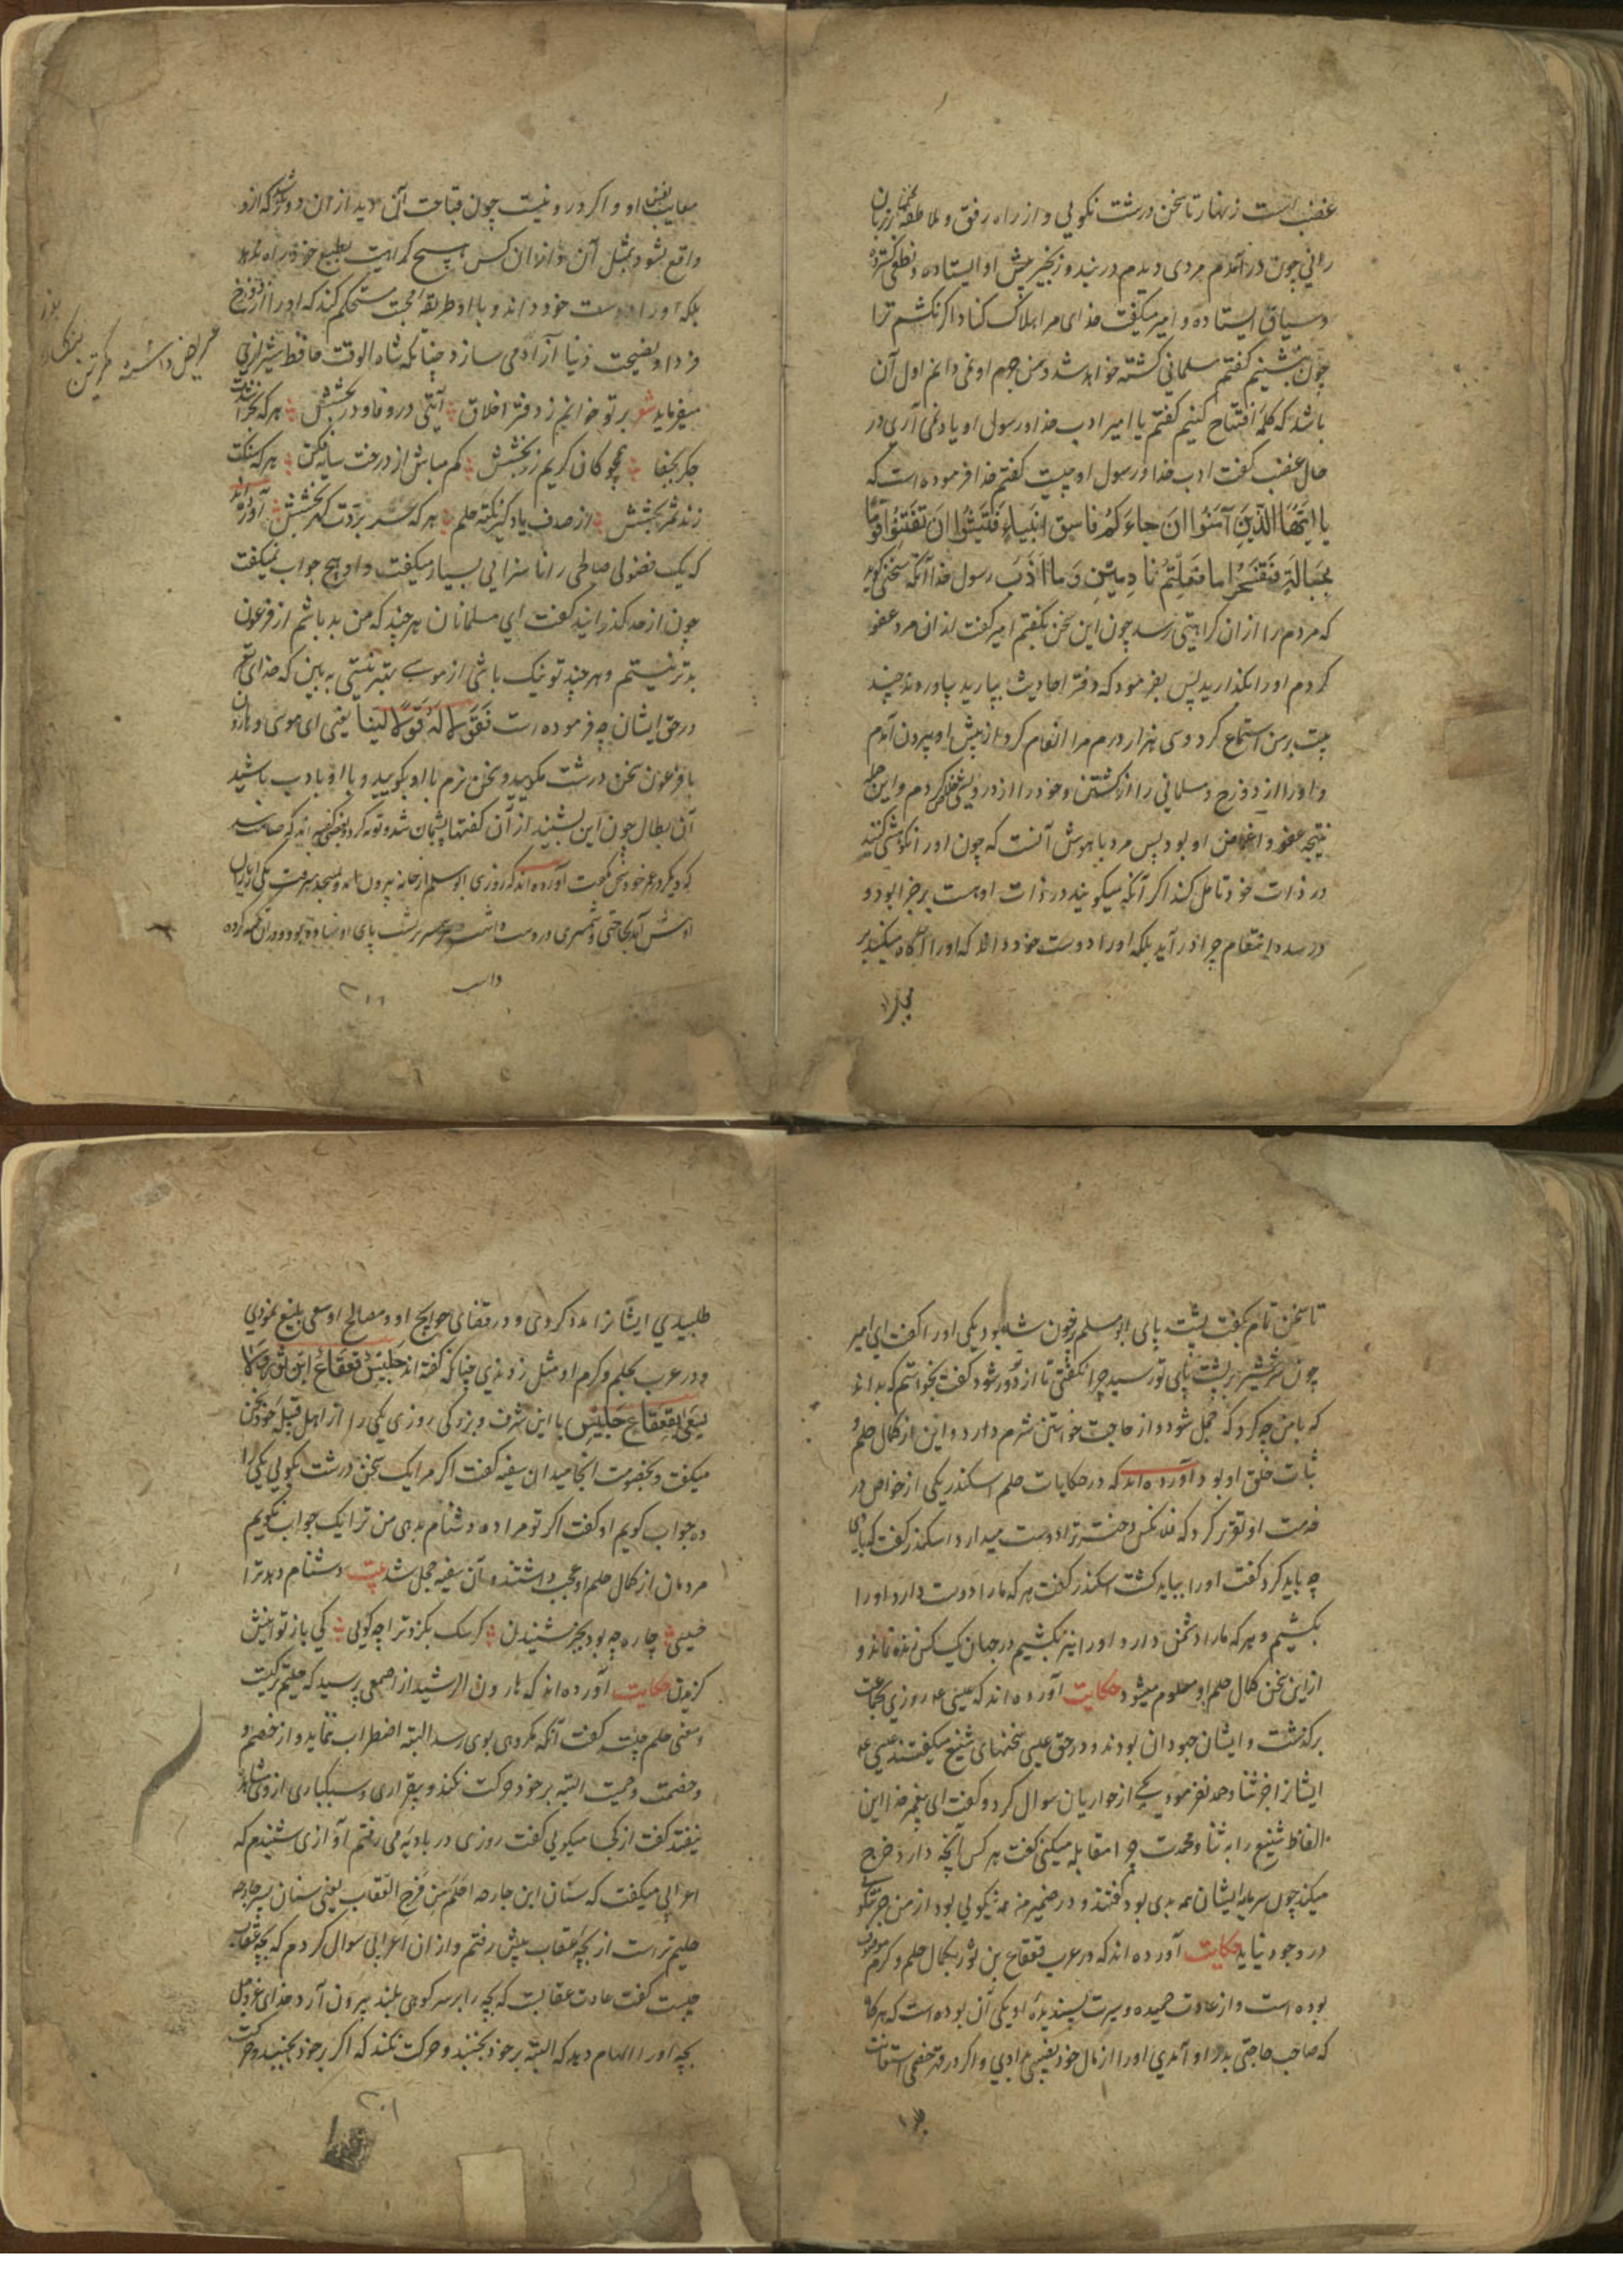 غضب است زنهار تا سخن درشت نکویی و از راه رفق و ملاطفه سخن
رانی چون در آمدم مردی دیدم در بند و زنجیر پیش او ایستاده و نطعی گسترده
و سیاف ایستاده و امیر میکفت خدای مرا هلاک کناد اکر نکشم ترا
چون بنشینم کفتم مسلمانی کشته خواهد شد و من جرم او نمی دانم اول آن
باشد که کلمه افتتاح کنیم کفتم یا امیر ادب خدا و رسول او یاد نمی آری در
حال غضب کفت ادب خدا و رسول او چیست کفتم خدا فرموده است که
یا ایها الذین آمنوا ان جاءکم فاسق بنباء فتبینوا ان تصیبوا قوما
بجهالة فتصبحوا ما فعلتم نادمین و ما ادب رسول خدا آنکه سخنی کوید
که مردم را از آن کراهیتی رسد چون این سخن بکفتم امیر کفت از آن مرد عفو
کردم او را بکذارید پس بفرمود که دفتر احادیث بیارید بیاوردند چند
بیت بر من استماع کرد و سی هزار درم مرا انعام کرد از پیش او بیرون آمدم
و او را از دوزخ و مسلمانی را از کشتن و خود را از درویشی خلاص کردم و این جمله
نتیجه عفو و اغماض او بود پس مرد با هوش آنست که چون او را نکوهش کنند
در ذات خود تامل کند اکر آنکه میکویند در ذات او هست برخیزا بود و
در صدد انتقام چرا در آید بلکه او را دوست خود داند که او را آکاه میکند بر
معایب نفس او و اکر در و نیست چون قباحت آن دید از آن دور شود که ازو
واقع بشود بمثل آن و از آن کس هیچ کراهیت بطبع خود راه ندهد
بلکه او را دوست خود داند و با او طریقه محبت مستحکم کند که او را از دوزخ
فردا و بفضیحت دنیا آزاد می سازد چنانکه شاه الوقت حافظ شیرازی
میفرماید شعر بر تو خوانیم ز دفتر اخلاق آیتی در وفا و در بخشش هر که بخراشدت
جکر بجفا همچو کان کریم زر بخشش کم مباش از درخت سایه فکن هر که سنکت
زند ثمر بخشش از صدف یاد کیر نکته حلم هر که سر بردت کهر بخشش آورده اند
که یک فضولی صالحی را ناسزایی بسیار میکفت و او هیچ جواب نمیکفت
چون از حد کذرانید کفت ای مسلمانان هر چند که من بد باشم از فرعون
بدتر نیستم و هر چند تو نیک باشی از موسی بهتر نیستی به بین که خدای تع
در حق ایشان چه فرموده است فقولا له قولا لینا یعنی ای موسی و هارون
با فرعون سخن درشت مکویید و سخن نرم با او بکویید و با او با ادب باشید
آن بطال چون این بشنید از آن کفتها پشیمان شد و توبه کرد و بعضی کفته اند که
که دیکر در عمر خود سخن نکفت آورده اند که روزی ابو مسلم از خانه بیرون آمد و بمسجد میرفت یکی
پیش آمد بحاجتی و شمشیری در دست داشت سر شمشیر بر پشت پای او نهاده بود و بر آن تکیه کرده
داست
۲۰۰
تا سخن تمام بکفت پشت پای ابو مسلم پر خون شده بود یکی او را کفت ای امیر
چون سر شمشیر بر پشت پای تو رسید چرا نکفتی تا از تو دور شود کفت نخواستم که بداند
که با من چه کرد که خجل شود و از حاجت خواستن شرم دارد و این از کمال حلم و
ثبات خلق او بود آورده اند که در حکایات حلم اسکندر یکی از خواص در
خدمت او تقریر کرد که فلانکس دختر ترا دوست میدارد اسکندر کفت که با وی
چه باید کرد کفت او را بباید کشت اسکندر کفت هر که ما را دوست دارد او را
بکشیم و هر که ما را دشمن دارد او را نیز بکشیم در جهان یک کس زنده نماند و
از این سخن کمال حلم او معلوم میشود حکایت آورده اند که عیسی ع روزی بجماعت
برکذشت و ایشان جهودان بودند و در حق عیسی سخنهای شنیع میکفتند عیسی ع
ایشانرا جز ثنا و حمد نفرمود یکی از حواریان سوال کرد و کفت ای پیغمبر خدا این
الفاظ شنیع را به ثنا و محمدت چرا مقابله میکنی کفت هر کس آنچه دارد خرج
میکند چون سرمایه ایشان همه بدی بود کفتند و در ضمیر من همه نیکویی بود از من جز نیکویی
در وجود نیاید حکایت آورده اند که در عرب قعقاع بن شور بکمال حلم و کرم موصوف
بوده است و از عادت حمیده و سیرت پسندیده او یکی آن بوده است که هر کاه
که صاحب حاجتی بدر او آمدی او را از مال خود نصیبی دادی و اکر در قهر خصمی استعانت
طلبیدی ایشانرا مدد کردی و در قضای حوایج او و مصالح او سعی بلیغ نمودی
و در عرب بحلم و کرم او مثل زدندی چنانکه کفته اند جلیس قعقاع ابن شور
یعنی قعقاع جلیس با این شرف و بزرکی روزی یکی را از اهل قبیله خود سخن
میکفت و بخصومت انجامید آن سفیه کفت اکر مرا یک سخن درشت بکویی یکی را
ده جواب کویم او کفت اکر تو مرا ده دشنام بدهی من ترا یک جواب نکویم
مردمان از کمال حلم او عجب داشتند و آن سفیه خجل شد بیت دشنام دهد ترا
خسیسی چاره چه بود بجز شنیدن کر سک بکزد ترا چه کویی کی باز توانیش
کزیدن حکایت آورده اند که هارون الرشید از اصمعی پرسید که حلیمتر کیست
و معنی حلم چیست کفت آنکه مکروهی بوی رسد البته اضطراب ننماید و از خصم و
و خصمت و حمیت البته بر خود حرکت نکند و بیقراری و سبکباری از وی مشاهده
نیفتد کفت از کجا میکویی کفت روزی در بادیه می رفتم آوازی شنیدم که
اعرابی میکفت که سنان ابن جارحه احلم من فرخ العقاب یعنی سنان پسر جارحه
حلیم تر است از بچه عقاب پیش رفتم و از آن اعرابی سوال کردم که بچه عقاب
چیست کفت عادت عقابست که بچه را بر سر کوهی بلند بیرون آرد خدای عزوجل
بچه او را الهام دهد که البته بر خود نجنبد و حرکت نکند که اکر بر خود بجنبد و حرکت
۲۰۱